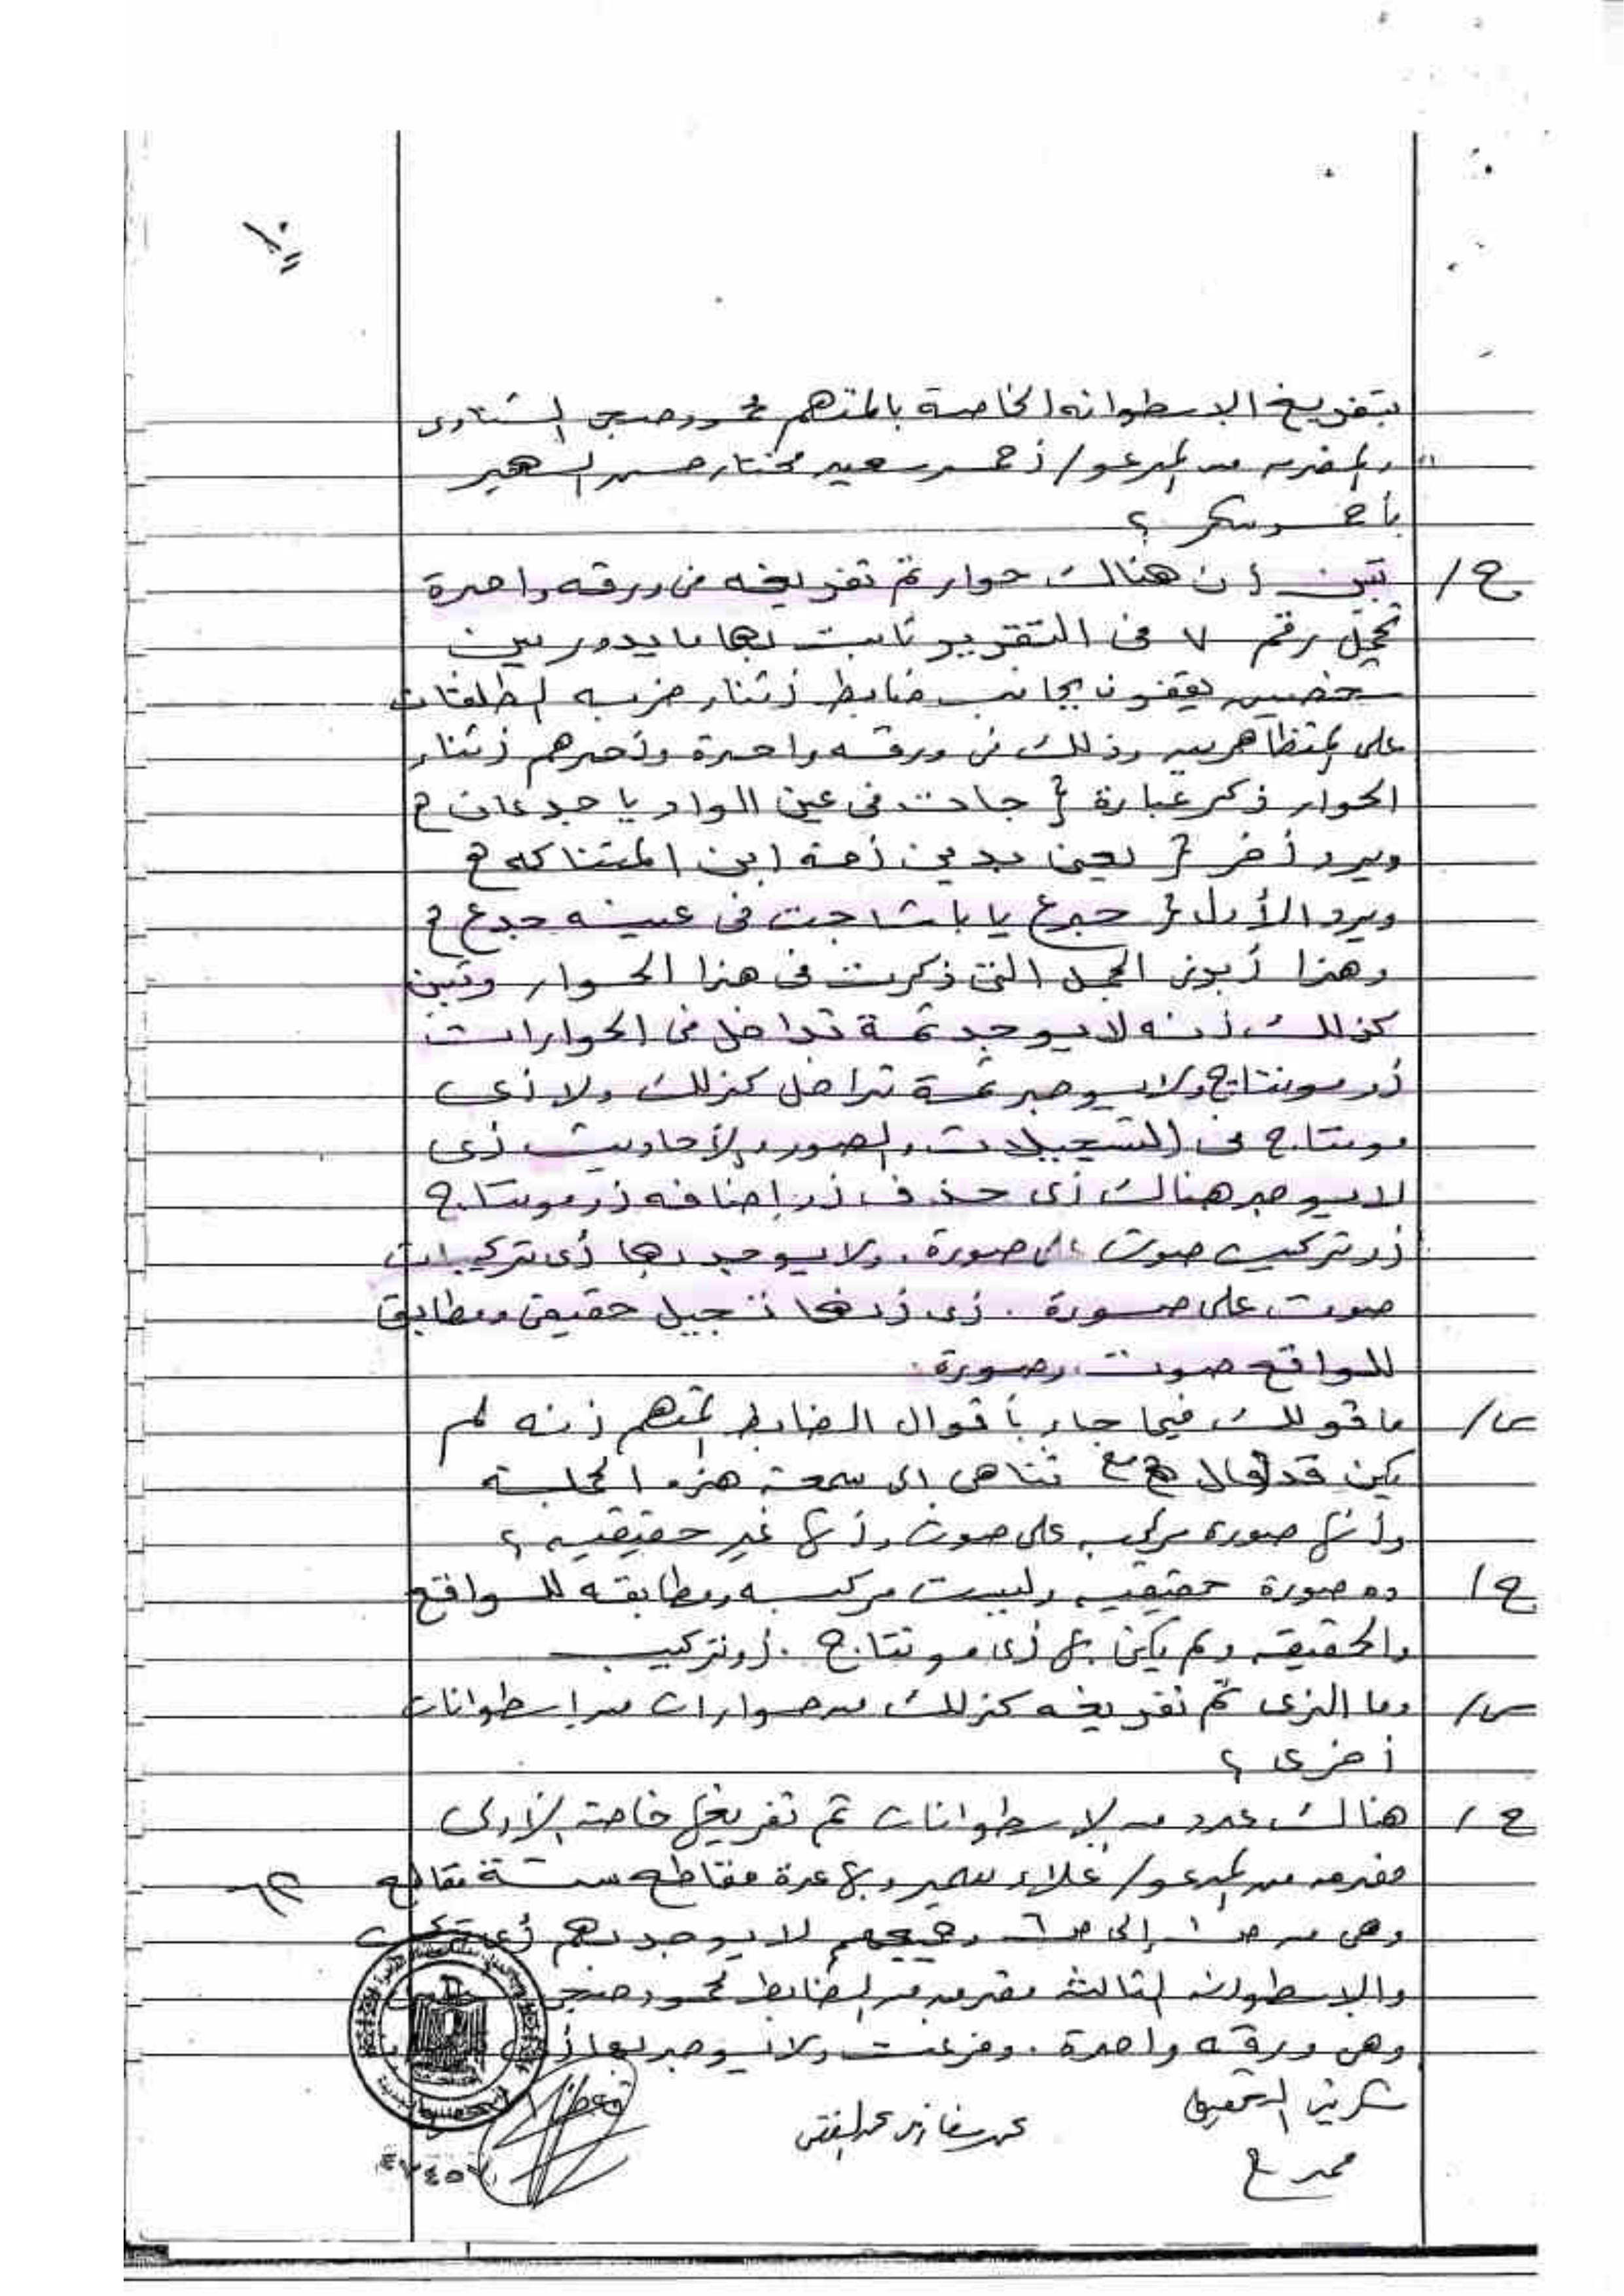 ١٠
بتفريغ الاسطوانه الخاصة بالمتهم محمود صبحى الشناوى
والمقدمه من المدعو/ أحمد سعيد مختار حسن الشهير
بأحمد سكر ؟
ج/ تبين أن هناك حوار تم تفريغه فى ورقه واحدة
تحمل رقم ٧ فى التقرير ثابت بها ما يدور بين
شخصين يقفون بجانب ضابط أثناء ضربه الطلقات
على المتظاهرين وذلك فى ورقه واحدة وأحدهم أثناء
الحوار ذكر عبارة { جات فى عين الواد يا جدعان }
ويرد أخر { لعين بدين أمة ابن المتناكه }
ويرد الأول { جدع يا باشا جت فى عينه جدع }
وهذا أبرز الجمل التى ذكرت فى هذا الحوار وتبين
كذلك أنه لا يوجد ثمة تداخل فى الحوارات
أو مونتاج ولا يوجد ثمة تداخل كذلك ولا أى
مونتاج فى التسجيلات والصور والأحاديث أى
لا يوجد هناك أى حذف أو إضافه أو مونتاج
أو تركيب صوت على صورة. ولا يوجد بها أى تركيبات
صوت على صورة. أى أنها تسجيل حقيقى ومطابق
للواقع صوت وصورة.
س/ ما قولك فيما جاء بأقوال الضابط المتهم أنه لم
يكن قد تناهى الى سمعه هذه الجملة
وأنها صورة مركب على صوت وأنها غير حقيقيه ؟
ج/ ده صورة حقيقيه وليست مركبه ومطابقه للواقع
والحقيقه ولم يكن بها أى مونتاج. أو تركيب
س/ وما الذى تم تفريغه كذلك من حوارات من اسطوانات
أخرى ؟
ج/ هناك عدد من الاسطوانات تم تفريغها خاصة الأولى
مقدمه من المدعو/ علاء سمير وبها عدة مقاطع ستة مقاطع
وهى من ص١ إلى ص٦ وجميعهم لا يوجد بهم أى
والاسطوانه الثالثه مقدمه من الضابط محمود صبحى
وهى ورقه واحدة. وفرغت ولا يوجد بها أى
سكرتير التحقيق